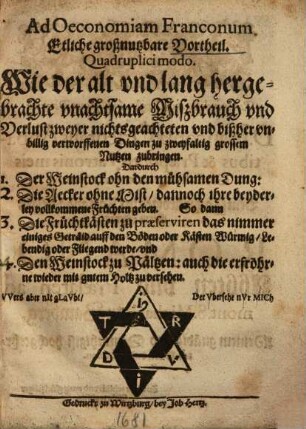 Ad Oeconomiam Franconum
Etliche großnutzbare Vortheil.
Quadruplici modo.
Wie der alt vnd lang herge-
brachte vnachtsame Miszbrauch vnd
Verlust zweyer nichts geachteten vnd bißher vn-
billig verworffenen Dingen zu zweyfaltig grossem
Nutzen zubringen.
Dardurch
1. Der Weinstock ohn den mühsamen Dung:
2. Die Aecker ohne Mist / dannoch ihre beyder-
ley vollkommene Früchten geben. So dann
3. Die Früchtkästen zu præserviren das nimmer
einiges Getraid auff den Böden oder Kästen Würmig / Le-
bendig oder Fliegend werde / vnd
4. Den Weinstock zu Pältzen: auch die erfrohr-
ne wieder mit gutem Holtz zu versehen.
VVers aber nIt gLaVbt /
Der Vbersehe nVr MICh
I
T R
D V
I
Gedruckt zu Wirtzburg / bey Job Hertz.
1681